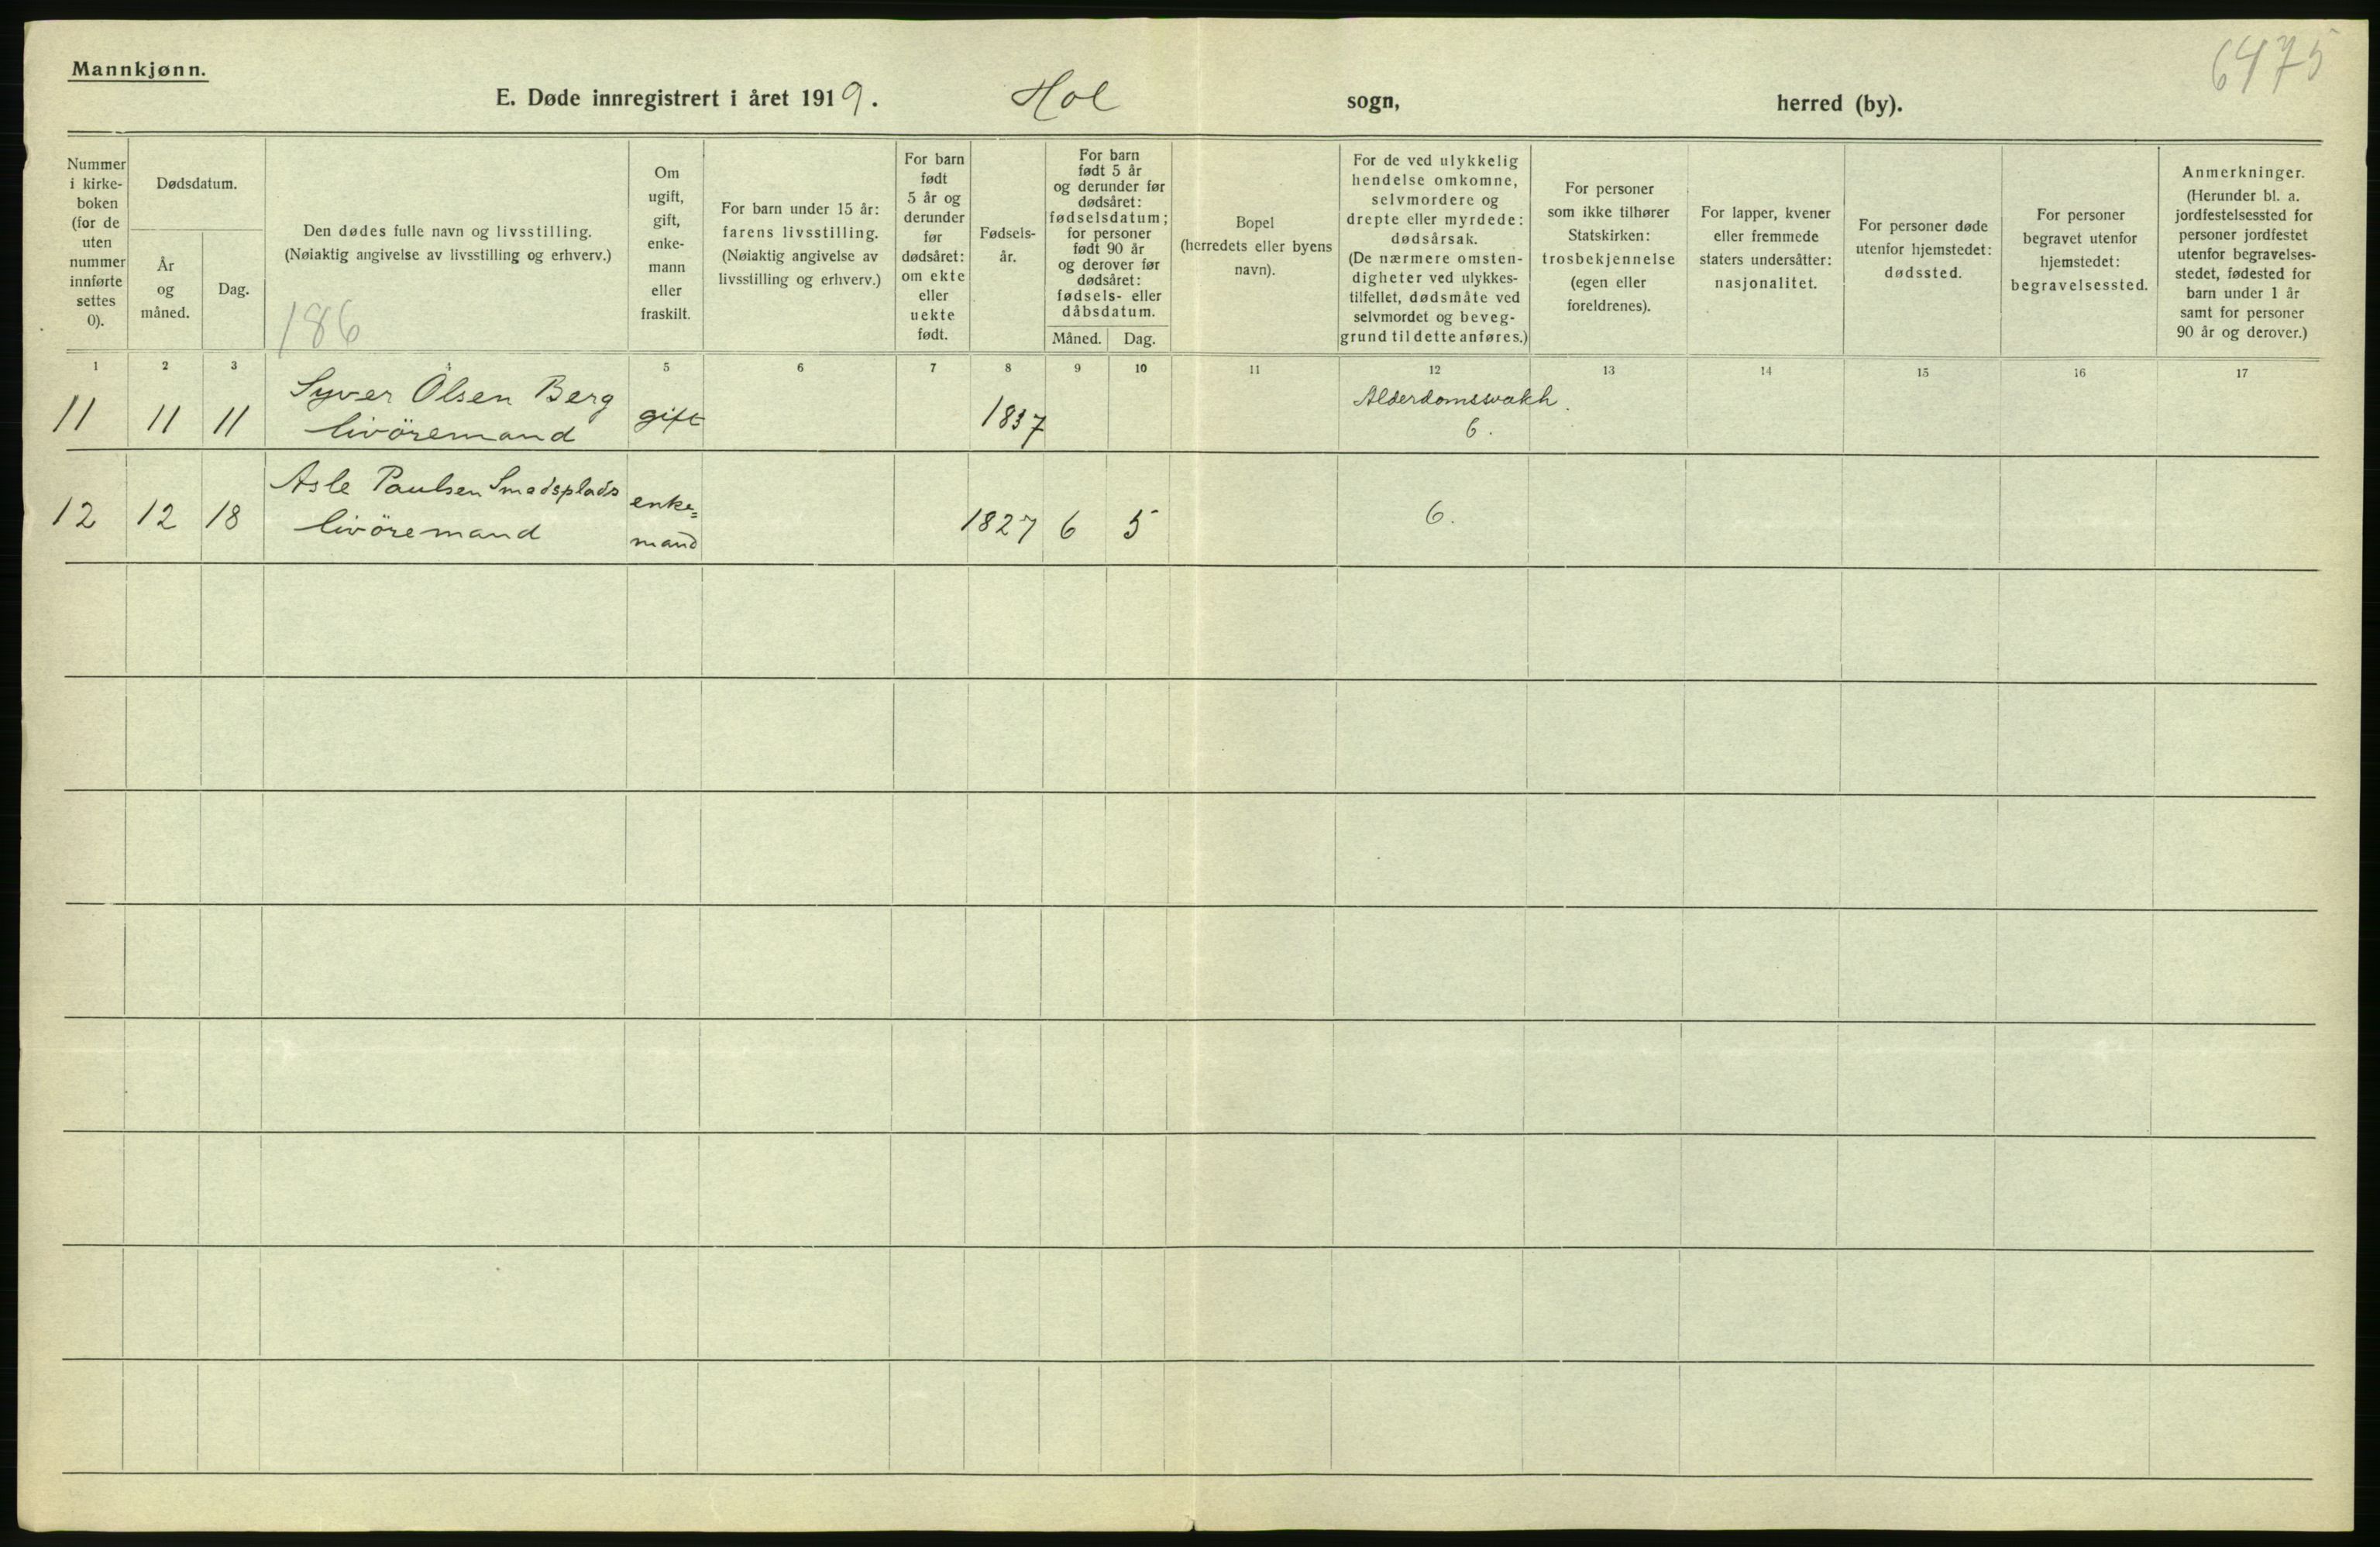 Mannkjønn.
6475
E. Døde innregistrert i året 1919. Hol sogn, herred (by).
Nummer i kirke- boken (for de uten nummer innførte settes 0).
Dødsdatum.
År og måned.
Dag.
Den dødes fulle navn og livsstilling.
(Nøiaktig angivelse av livsstilling og erhverv.)
186
Om ugift, gift, enke- mann eller fraskilt.
For barn under 15 år:
farens livsstilling.
(Nøiaktig angivelse av
livsstilling og erhverv.)
For barn født 5 år og derunder før dødsåret: om ekte eller uekte født.
Fødsels- år.
For barn født 5 år og derunder før dødsåret: fødselsdatum; for personer født 90 år og derover før dødsåret: fødsels- eller dåbsdatum.
Måned. Dag.
Bopel
(herredets eller byens
navn).
For de ved ulykkelig
hendelse omkomne,
selvmordere og
drepte eller myrdede:
dødsårsak.
(De nærmere omsten-
digheter ved ulykkes-
tilfellet, dødsmåte ved
selvmordet og beveg-
grund til dette anføres.)
For personer
som ikke tilhører
Statskirken:
trosbekjennelse
(egen eller
foreldrenes).
For lapper, kvener
eller fremmede
staters undersåtter:
nasjonalitet.
For personer døde
utenfor hjemstedet:
dødssted.
For personer
begravet utenfor
hjemstedet:
begravelsessted.
Anmerkninger.
(Herunder bl. a.
jordfestelsessted for
personer jordfestet
utenfor begravelses-
stedet, fødested for
barn under 1 år
samt for personer
90 år og derover.)
1 2 3 4 5 6 7 8 9 10 11 12 13 14 15 16 17
11 11 11 Syver Olsen Berg gift 1837 Alderdomssvakh.
livöremand 6.
12 12 18 Asle Paulsen Smedsplads enke= 1827 6 5 6.
livöremand mand